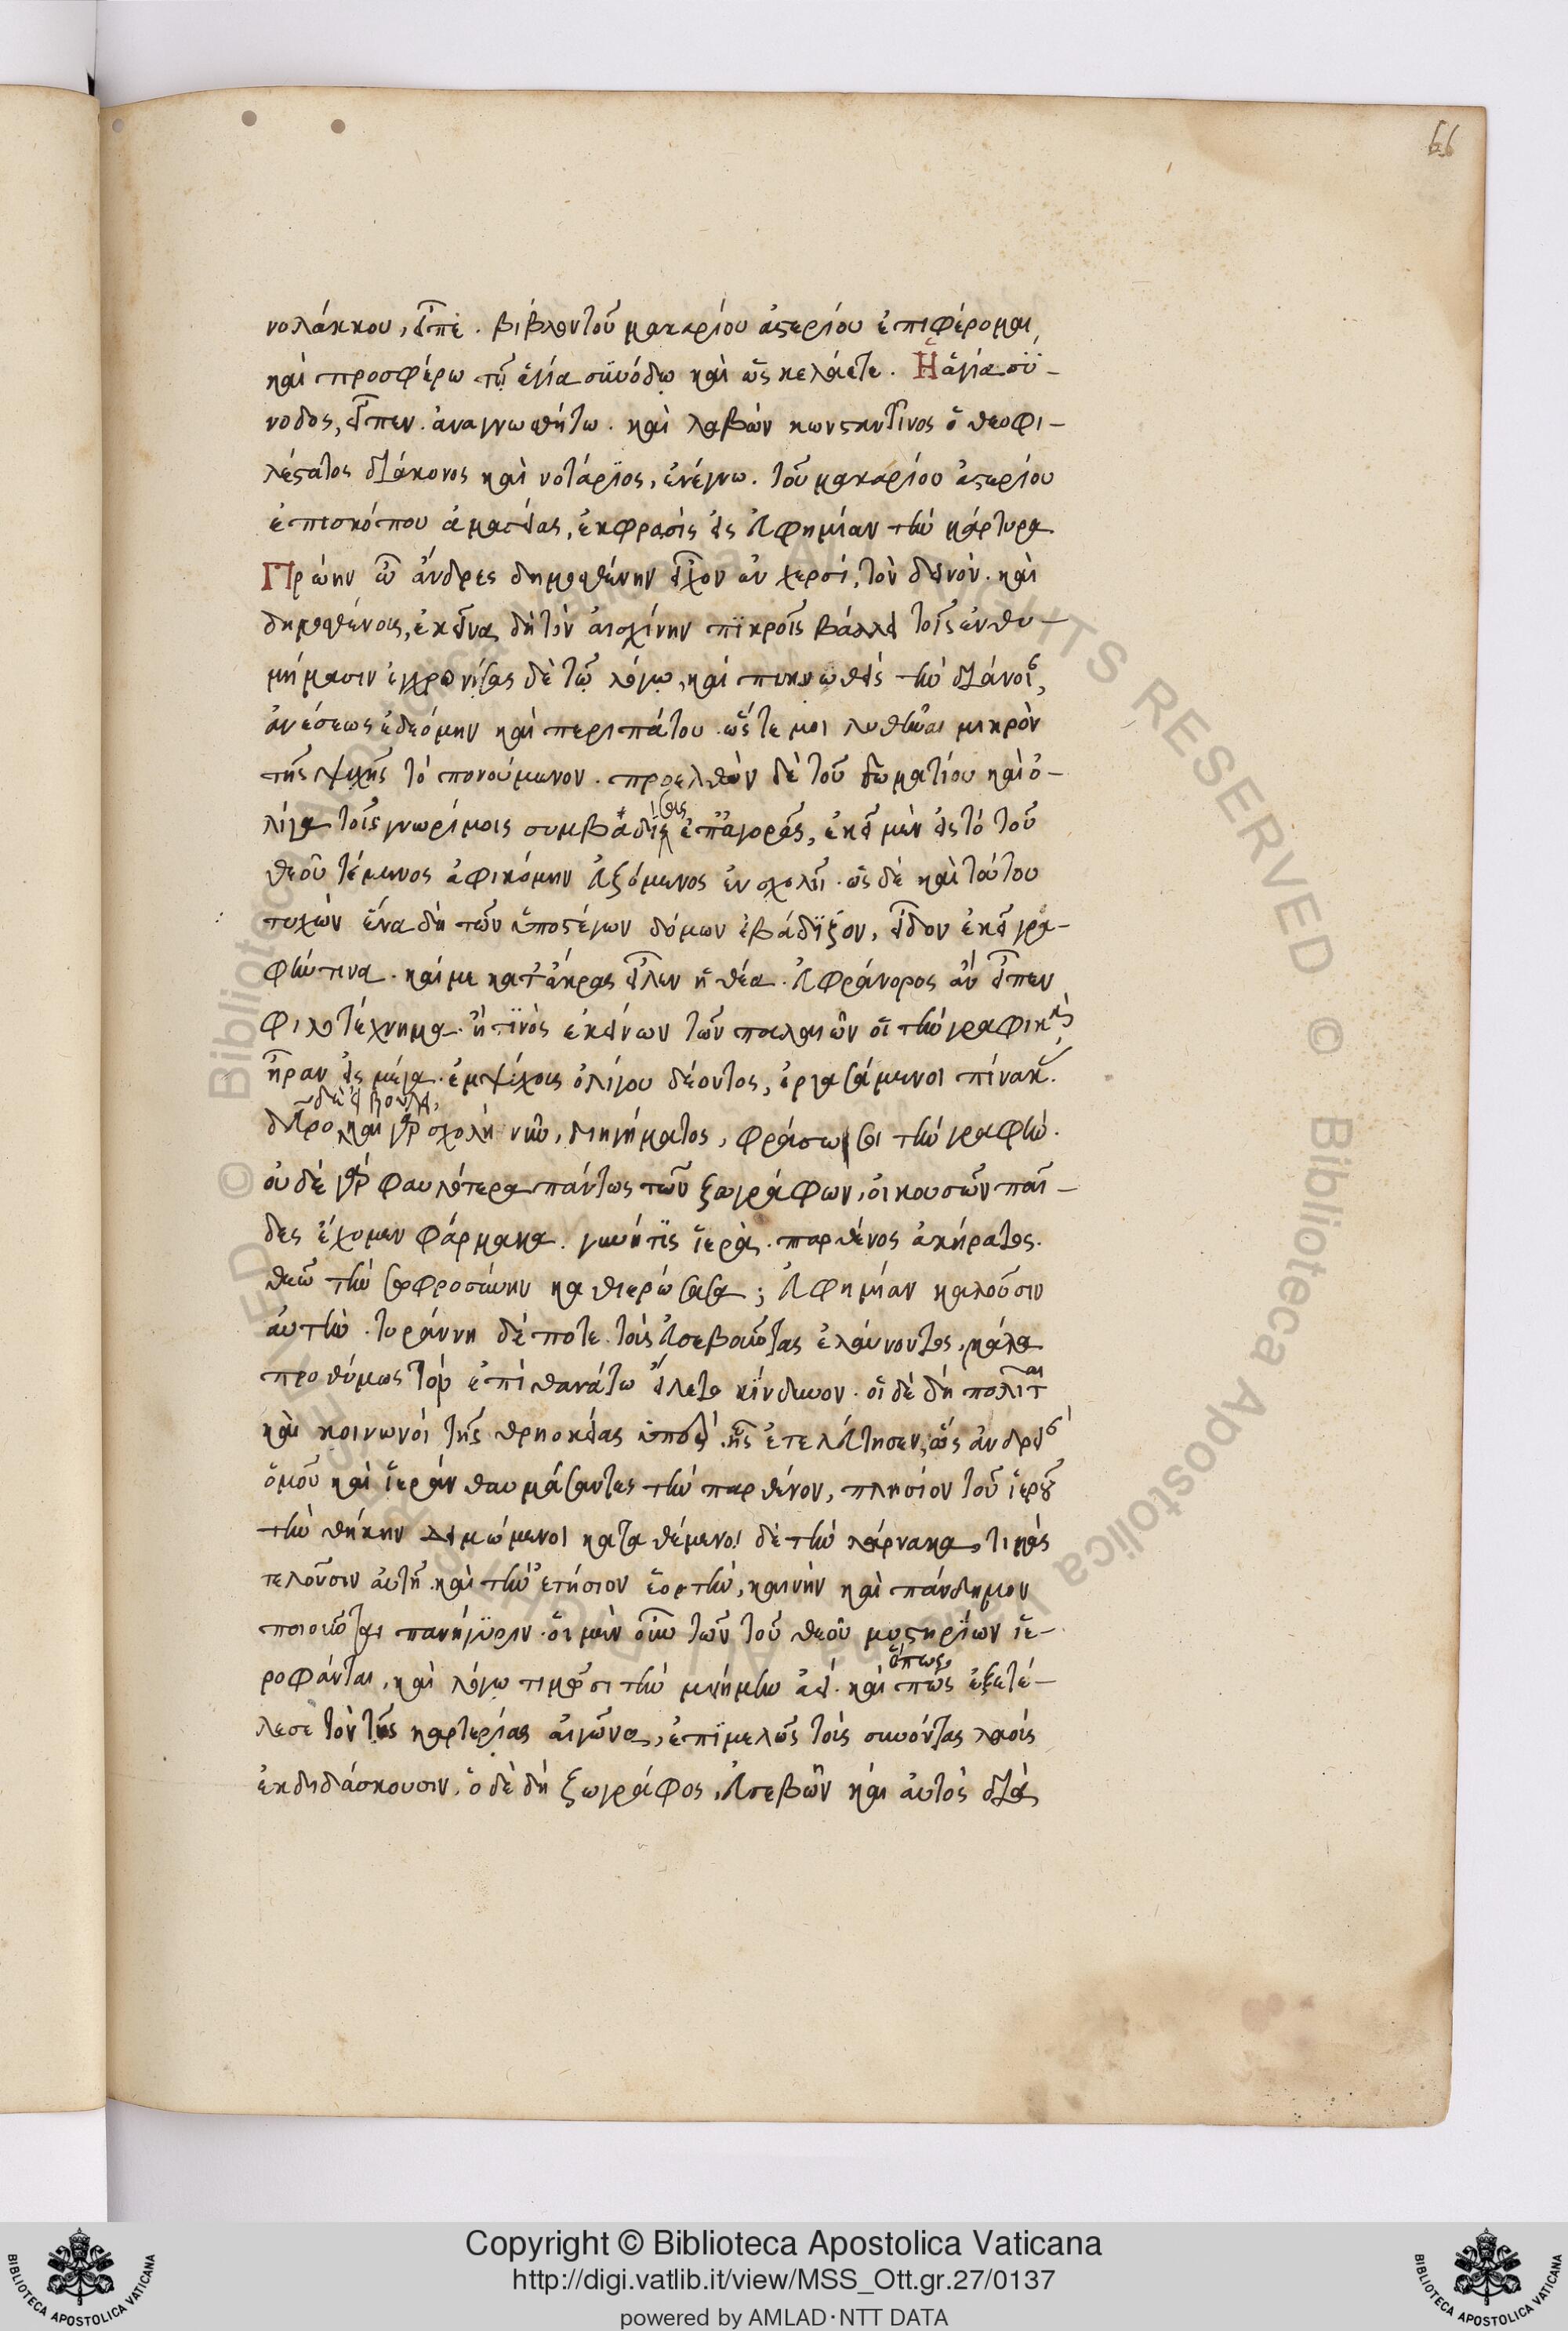 66
νολάκκου, εἶπε. βίβλον τοῦ μακαρίου ἀστερίου ἐπιφέρομαι
καὶ προσφέρω τῇ ἁγία συνόδω καὶ ὡς κελεύετε. Ἡ ἁγία σύ-
νοδος, εἶπεν. ἀναγνωσθήτω. καὶ λαβὼν κωνσταντῖνος ὁ θεοφι-
λέστατος διάκονος καὶ νοτάριος, ἀνέγνω. τοῦ μακαρίου ἀστερίου
ἐπισκόπου ἀμασείας, ἔκφρασις εἰς εὐφημίαν τὴν μάρτυρα
Πρώην ὦ ἄνδρες δημοσθένην εἶχον ἐν χερσί, τὸν δεινόν. καὶ
δημοσθένους, ἐκεῖνα δὴ τὸν αἰσχίνην πικροῖς βάλλει τοῖς ἐνθυ-
μήμασιν ἐγχρονίσας δὲ τῷ λόγῳ, καὶ πυκνωθεὶς τὴν διάνοιαν,
ἀνέσεως ἐδεόμην καὶ περιπάτου. ὥστε μοι λυθῆναι μικρὸν
τῆς ψυχῆς τὸ πονούμενον. προελθὼν δὲ τοῦ δωματίου καὶ ὀ-
λίγα τοῖς γνωρίμοις συμβαδίσας ἐπ' ἀγορᾶς, ἐκεῖ μὲν εἰς τὸ τοῦ
θεοῦ τέμενος ἀφικόμην εὐξόμενος ἐν σχολῇ. ὡς δὲ καὶ τούτου
τυχὼν ἕνα δὴ τῶν ὑποστέγων δόμων ἐβάδιζον, εἶδον ἐκεῖ γρα-
φήν τινα. καί με κατ' ἄκρας εἷλεν ἡ θέα. εὐφράνορος ἂν εἶπεν
φιλοτέχνημα. ἤ τινὸς ἐκείνων τῶν παλαιῶν οἳ τὴν γραφικὴν
ἦραν εἰς μέγα. ἐμψύχους ὀλίγου δέοντος, ἐργασάμενοι πίνακας.
δεῦρο δὲ εἰ βούλει, καὶ γὰρ σχολὴ νῦν, διηγήματος, φράσω σοι τὴν γραφήν.
οὐδὲ γὰρ φαυλότερα πάντως τῶν ζωγράφων, οἱ μουσῶν παῖ-
δες ἔχομεν φάρμακα. γυνή τις ἱερὰ. παρθένος ἀκήρατος.
θεῶ τὴν σωφροσύνην καθιερώσασα; εὐφημίαν καλοῦσιν
αὐτήν. τυράννη δέ ποτε. τοὺς εὐσεβοῦντας ἐλαύνοντος, μάλα
προθύμως τὸν ἐπὶ θανάτω εἵλετο κίνδυνον. οἱ δὲ δὴ πολῖται
καὶ κοινωνοὶ τῆς θρησκείας ὑπὲρ ἧς ἐτελεύτησεν, ὡς ἀνδρείαν
ὁμοῦ καὶ ἱερὰν θαυμάσαντες τὴν παρθένον, πλησίον τοῦ ἱεροῦ
τὴν θήκην δειμώμενοι καταθέμενοι δὲ τὴν λάρνακα, τιμὰς
τελοῦσιν αὐτῇ. καὶ τὴν ἐτήσιον ἑορτήν, κοινὴν καὶ πάνδημον
ποιοῦνται πανήγυριν. οἱ μὲν οὖν τῶν τοῦ θεοῦ μυστηρίων ἱε-
ροφάνται, καὶ λόγω τιμῶσι τὴν μνήμην ἀεί. καὶ πῶς ὅπως ἐξετέ-
λεσε τὸν τῆς καρτερίας ἀγῶνα, ἐπιμελῶς τοὺς συνόντας λαοὺς
ἐκδιδάσκουσιν, ὁ δὲ δὴ ζωγράφος, εὐσεβῶν καὶ αὐτὸς διὰ
Copyright © Biblioteca Apostolica Vaticana
http://digi.vatlib.it/view/MSS_Ott.gr.27/0137
powered by AMLAD·NTT DATA